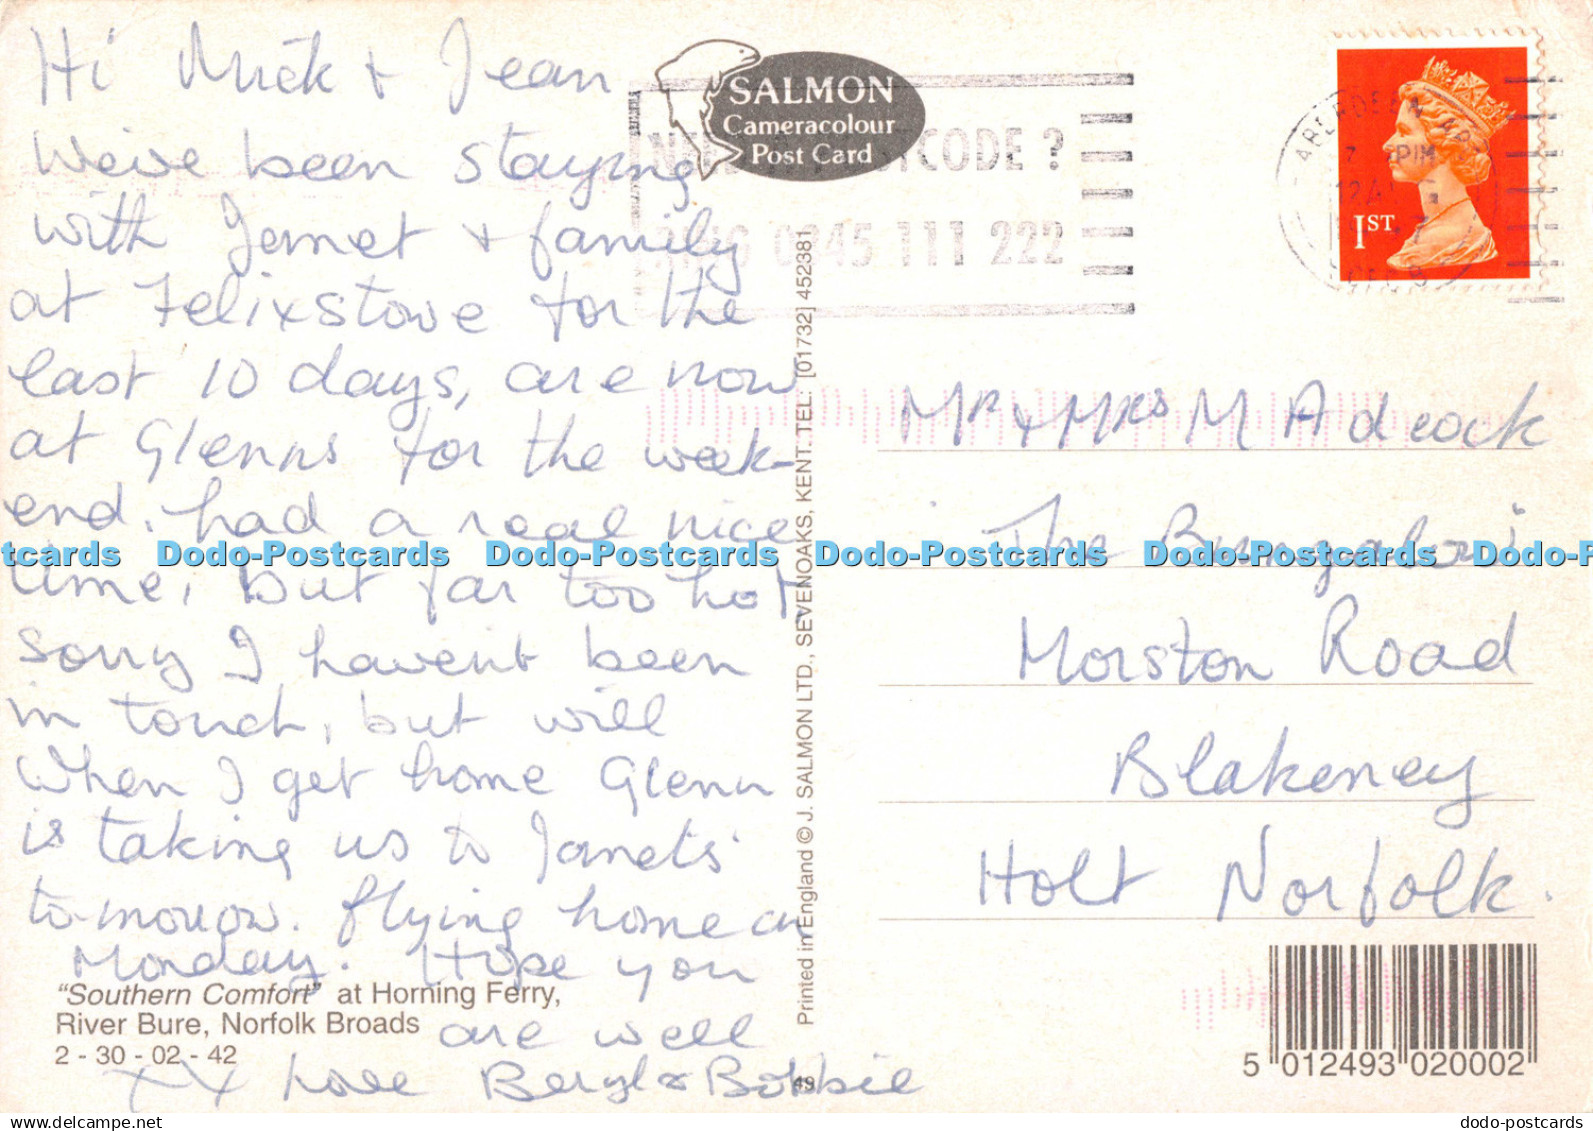 Hi Mick + Jean
We've been staying
with Janet + family
at Felixstowe for the
last 10 days, are now
at Glenns for the week-
end. had a real nice
time, but far too hot,
sorry I havent been
in touch, but will
When I get home Glenn
is taking us to Janets
to-morrow. flying home on
Monday. Hope you
are well
xxx Love Beryl & Bobbie
"Southern Comfort" at Horning Ferry,
River Bure, Norfolk Broads
2 - 30 - 02 - 42
SALMON
Cameracolour
Post Card
POSTCODE ?
RING 0345 111 222
Printed in England © J. SALMON LTD., SEVENOAKS, KENT. TEL: [01732] 452381
49
1ST
ABERDEEN
Mr + Mrs M Adcock
The Bungalow
Morston Road
Blakeney
Holt Norfolk.
5 012493 020002
Dodo-Postcards Dodo-Postcards Dodo-Postcards Dodo-Postcards
dodo-postcards
delcampe.net